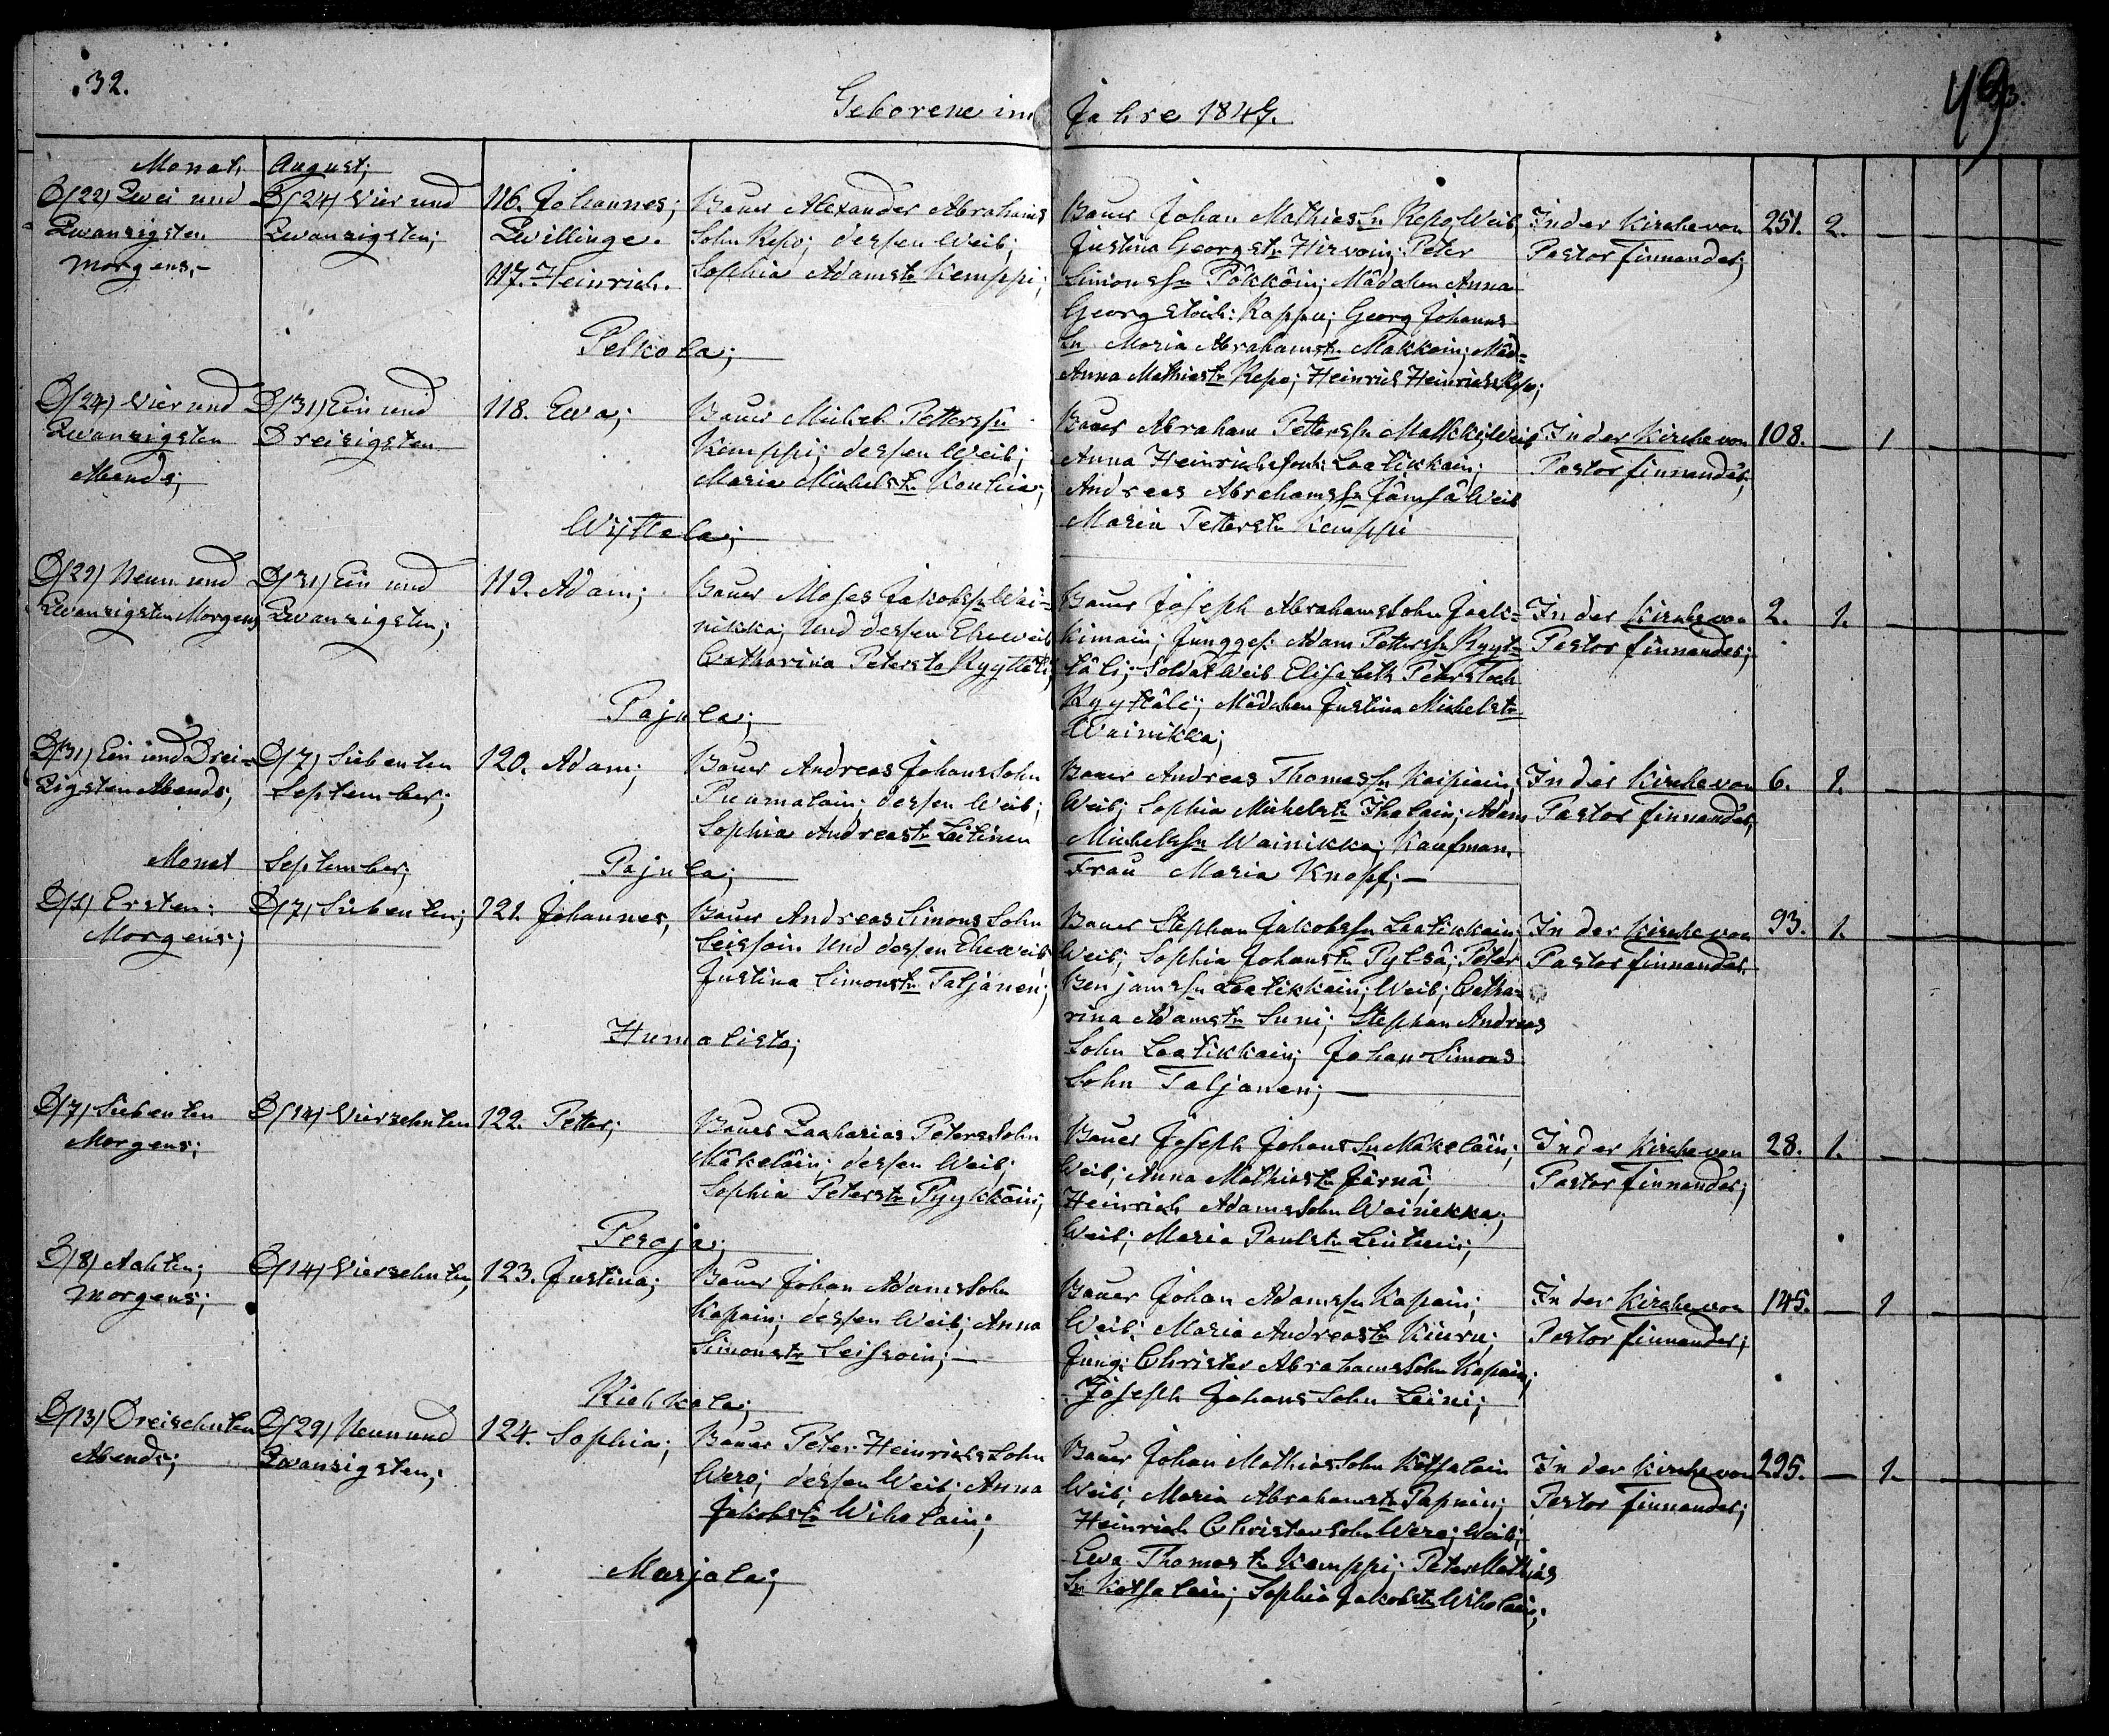 32.
Geborene im Jahre 1847.
49
Monat August;
D/22/ Zwei und Zwanzigsten Morgens,-
D/24/ Vier und Zwanzigsten;
116. Johannes;
Zwillinge.
117. Heinrich.
Bauer Alexander Abrahams
Sohn Repo; dessen Weib;
Sophia Adamstr Kemppi;
Bauer Johan Mathiessn Repo, Weib,
Justina Georgstr Hirvoin; Peter
Simonssn Pökköin; Mädchen Anna
Georgstoch: Rappu; Georg Johans
Sn Maria Abrahamstr Makkoin; Mäd=
Anna Mathiestr Repo; Heinrich Heinrichs Repo;
In der Kirche von
Pastor Finnander;
251. 2. —
Pelkola;
D/24/ Vier und
Zwanzigsten
Abends;
D/31/ Ein und
Dreizigsten
118. Ewa;
Bauer Michel Petterssn
Kemppi; dessen Weib;
Maria Michelstr
Bauer Abraham Petterssn Malkki, Weib
Anna Heinrichstoch: Laatikkain;
Andreas Abrahamssn Jämsä Weib
Maria Petterstr Kemppi
In der Kirche von
Pastor Finnander;
108. — 1
D/29/ Neun und
Zwanzigsten Morgens
D/31/ Ein und
Zwanzigsten;
119. Adam;
Bauer Moses Jakobssn Wai=
nikka; Und dessen Eheweib
Catharina Peterstr Ryyttäli;
Bauer Joseph Abrahamssohn Jaak=
kimain; Jungges: Adam Petterssn Ryyt=
täli; Soldat Weib Elisabeth Peters Toch
Ryyttäli; Mädchen Justina Michelstr
Wainikka;
In der Kirche von
Pastor Finnander;
2. 1. —
Pajula;
D/31/ Ein und Drei=
zigsten Abends;
D/7/ Siebenten
September;
120. Adam;
Bauer Andreas Johanssohn
Puumalain; dessen Weib;
Sophia Andreastr Leitinen
Bauer Andreas Thomassn Kaipiain;
Weib; Sophia Michelstr Ihalain; Adam
Michelssn Wainikka; Kaufman.
Frau Maria Knopf; —
In der Kirche von
Pastor Finnander;
6. 1. —
Monat September;
Pajula;
D/1/ Ersten:
Morgens;
D/7/ Siebenten;
121. Johannes,
Bauer Andreas Simonssohn
Seissoin Und dessen Eheweib
Justina Simonstr Taljanen;
Bauer Stephan Jakobssn Laatikkain;
Weib; Sophia Johanstr Pylsä; Peter
Benjamssn Laatikkain; Weib; Catha=
rina Adamstr Suni; Stephan Andreas
Sohn Laatikkain; Johan Simons
Sohn Taljanen; —
In der Kirche von
Pastor Finnander.
93. 1. —
Humalisto;
D/7/ Siebenten
Morgens;
D/14/ Vierzehnten
122. Petter;
Bauer Zacharias Peterssohn
Mäkeläin; dessen Weib;
Sophia Peterstr Pyykköin;
Bauer Joseph Johanssn Mäkeläin;
Weib; Anna Mathiestr Järnä;
Heinrich Adamssohn Wainikka;
Weib; Maria Paulstr
In der Kirche von
Pastor Finnander;
28. 1. —
Peroja;
D/8/ Achten;
Morgens;
D/14/ Vierzehnten,
123. Justina;
Bauer Johan Adamssohn
Kapain; dessen Weib; Anna
Simonstr Seissoin; —
Bauer Johan Adamssn Kapain;
Weib; Maria Andreastr Kiuru;
Jung: Christer Abrahamssohn Kapain;
Joseph Johanssohn Leini;
In der Kirche von
Pastor Finnander;
145. — 1
D/13/ Dreizehnten
Abends;
D/29/ Neun und
Zwanzigsten;
124. Sophia;
Bauer Peter Heinrichssohn
Wero; dessen Weib; Anna
Jakobstr Wiholain;
Bauer Johan Mathiessohn
Weib; Maria Abrahamstr Papuin;
Heinrich Christersohn Wero; Weib;
Ewa Thomastr Kemppi; Peter Mathias
Sn Sophia Jakobstr Wiholain;
In der Kirche von
Pastor Finnander;
295. — 1.
Marjala;